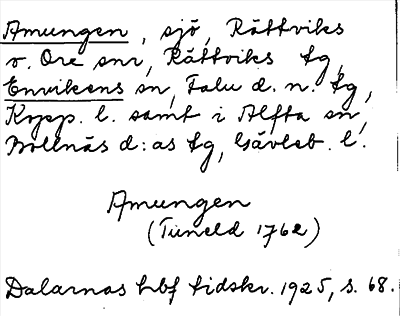 Amungen, sjö, Rättviks
o. Ore snr, Rättviks tg,
Envikens sn, Falu d. n. tg,
Kopp. l. samt i Alfta sn,
Bollnäs d:as tg, Gävleb. l.
Amungen
(Tuneld 1762)
Dalarnas hbf tidskr. 1925, s. 68.